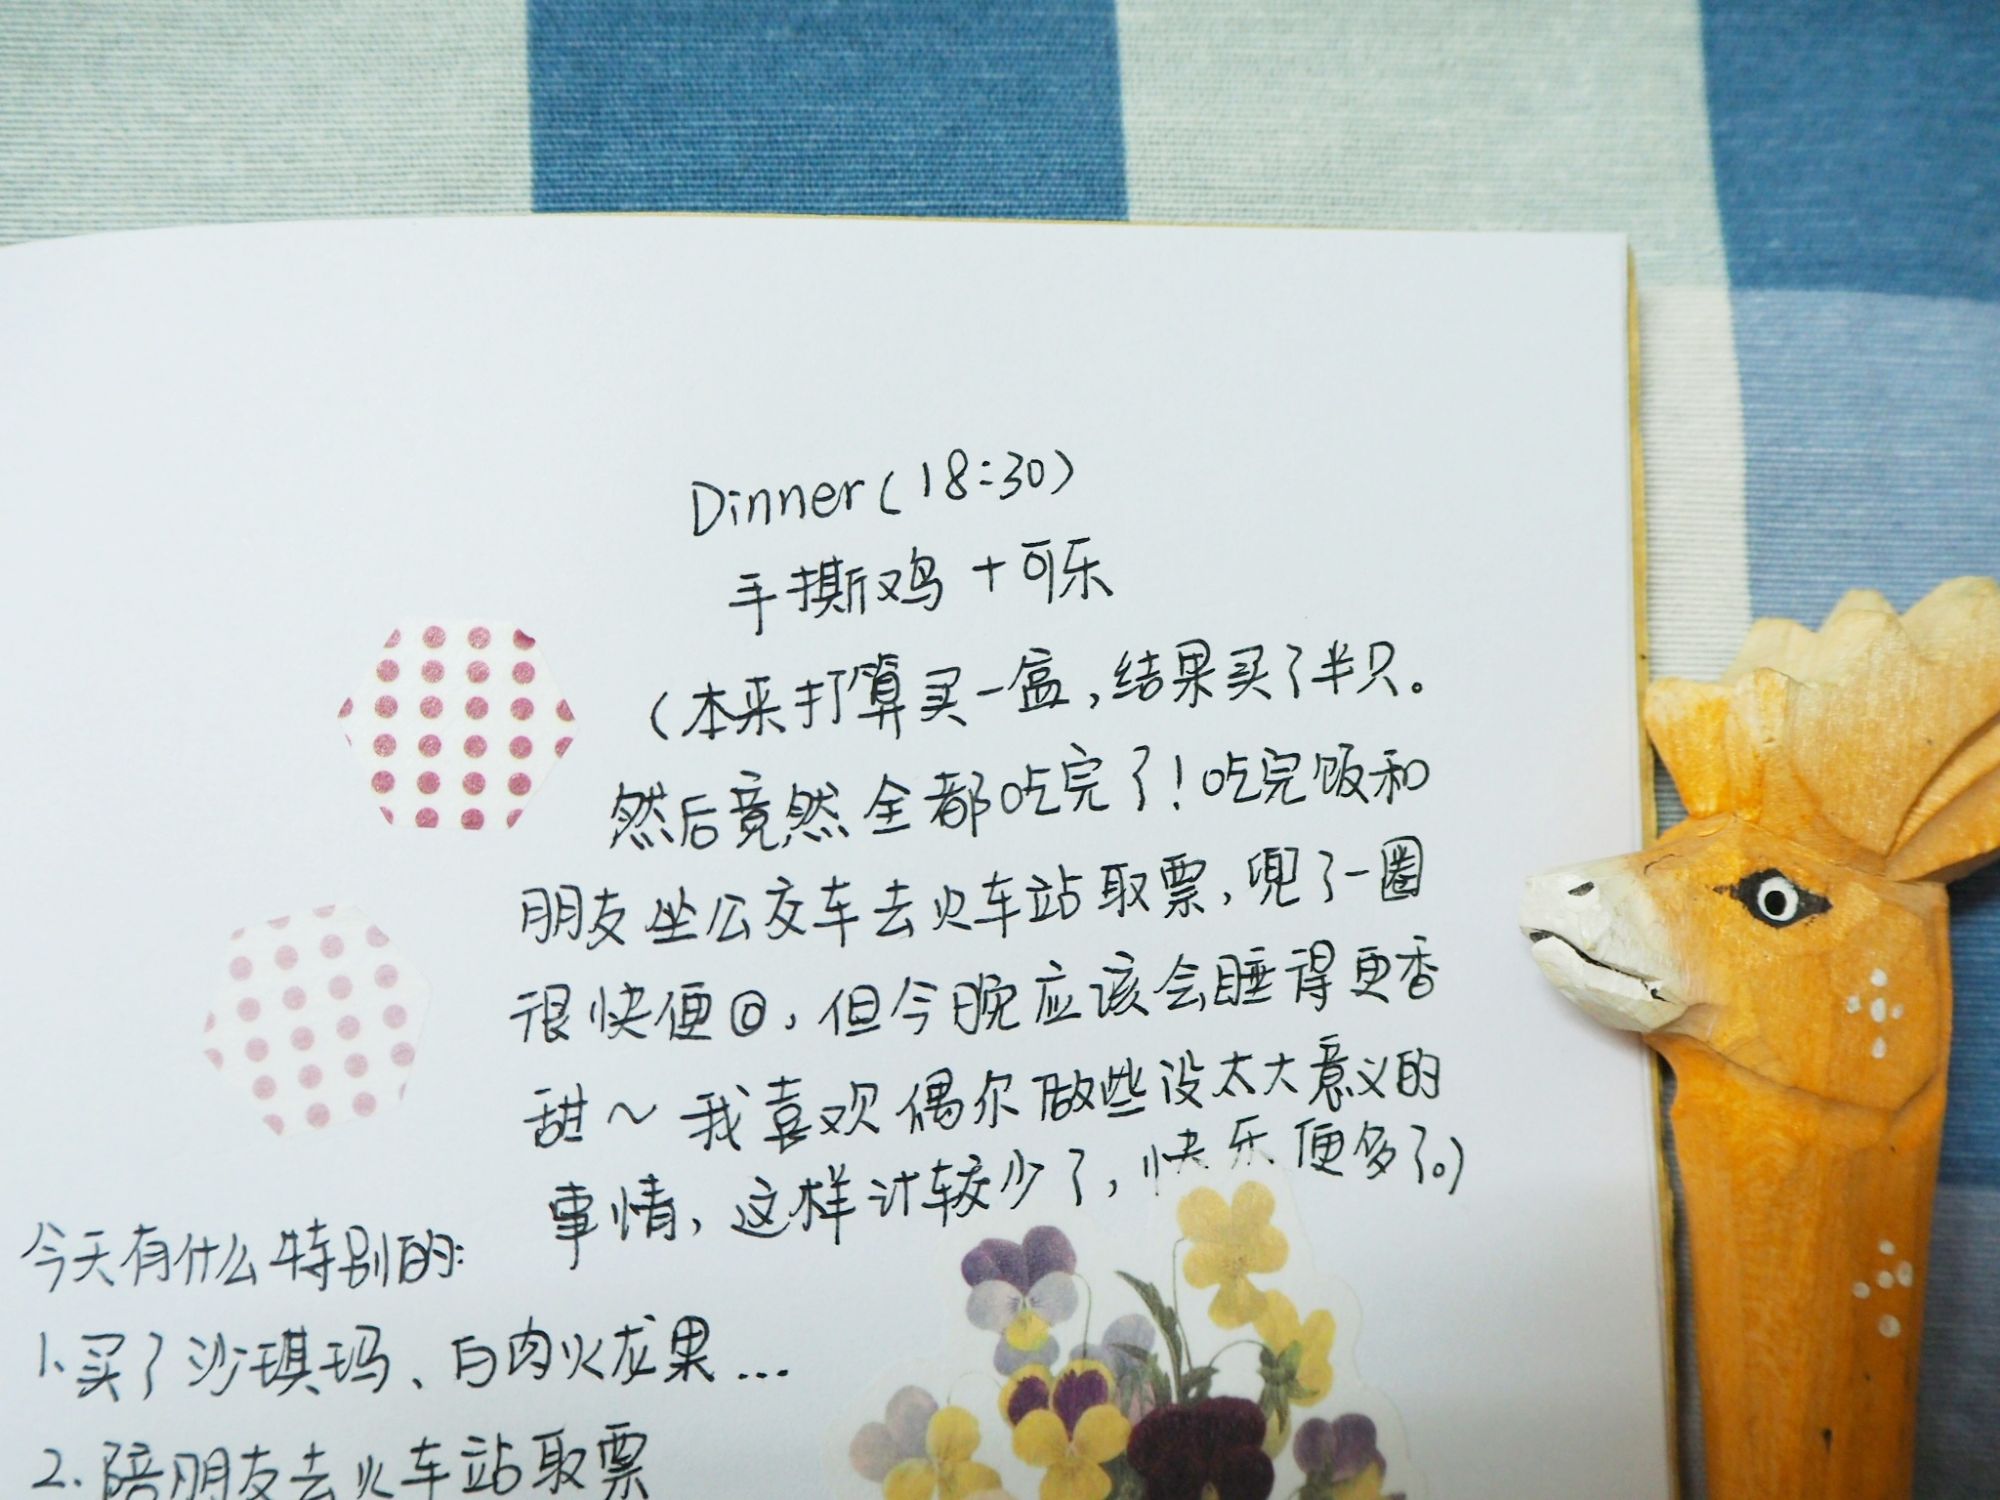 Dinner(18:30)
手撕鸡+可乐
(本来打算买一盒,结果买了半只。
然后竟然全都吃完了!吃完饭和
朋友坐公交车去火车站取票,兜了一圈
很快便回,但今晚应该会睡得更香
甜～我喜欢偶尔做些没太大意义的
事情,这样计较少了,快乐便多了。)
今天有什么特别的:
1.买了沙琪玛、白肉火龙果...
2.陪朋友去火车站取票